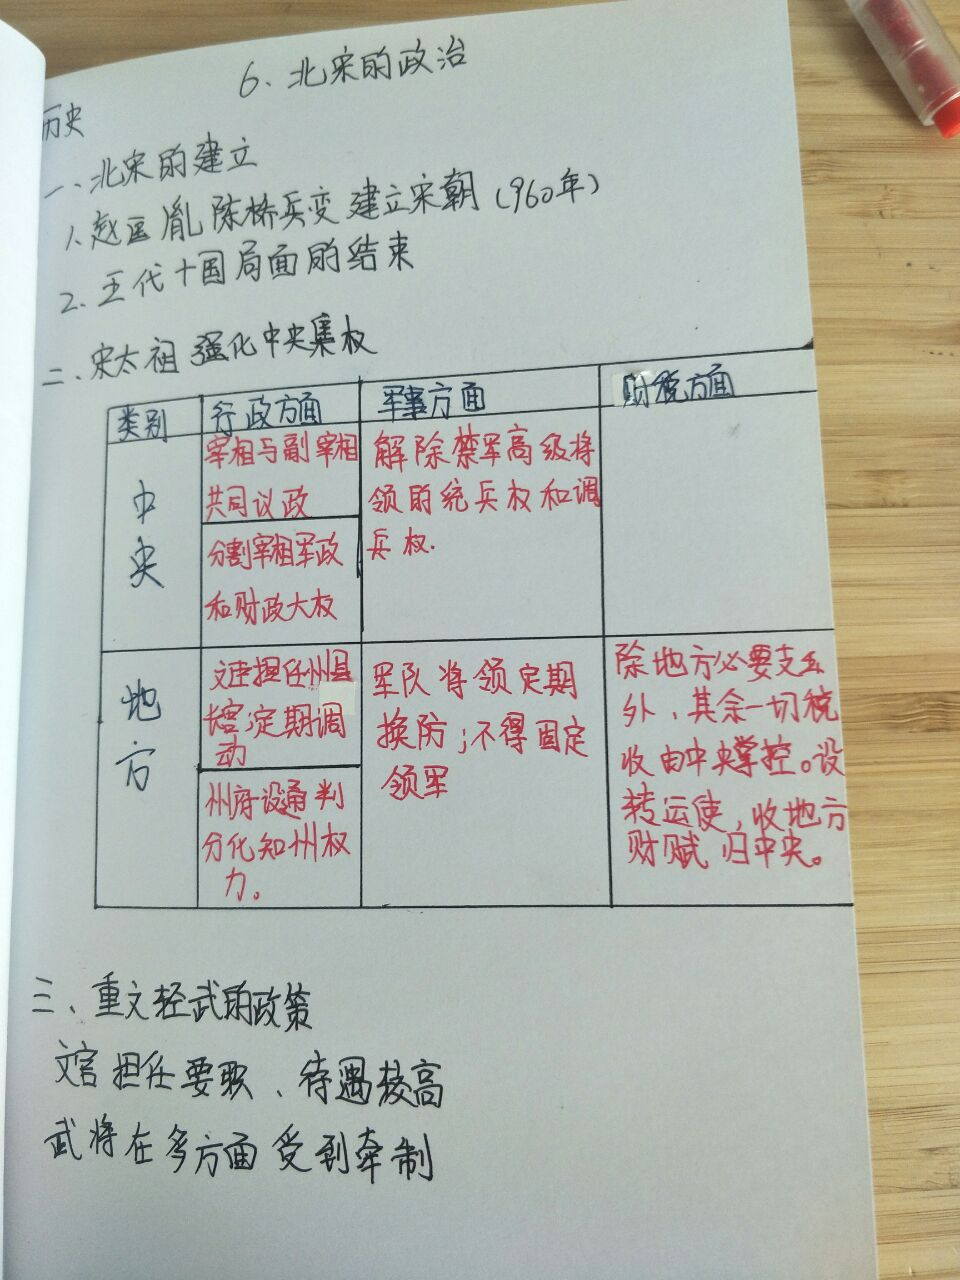 6、北宋的政治
历史
一、北宋的建立
1、赵匡胤陈桥兵变建立宋朝(960年)
2、五代十国局面的结束
二、宋太祖强化中央集权
类别 行政方面 军事方面 财税方面
中央
宰相与副宰相
共同议政
分割宰相军政
和财政大权
解除禁军高级将
领的统兵权和调
兵权.
地方
文臣担任州县
长官;定期调
动
州府设通判
分化知州权
力。
军队将领定期
换防;不得固定
领军
除地方必要支出
外,其余一切税
收由中央掌控。设
转运使,收地方
财赋归中央。
三、重文轻武的政策
文官担任要职、待遇较高
武将在多方面受到牵制